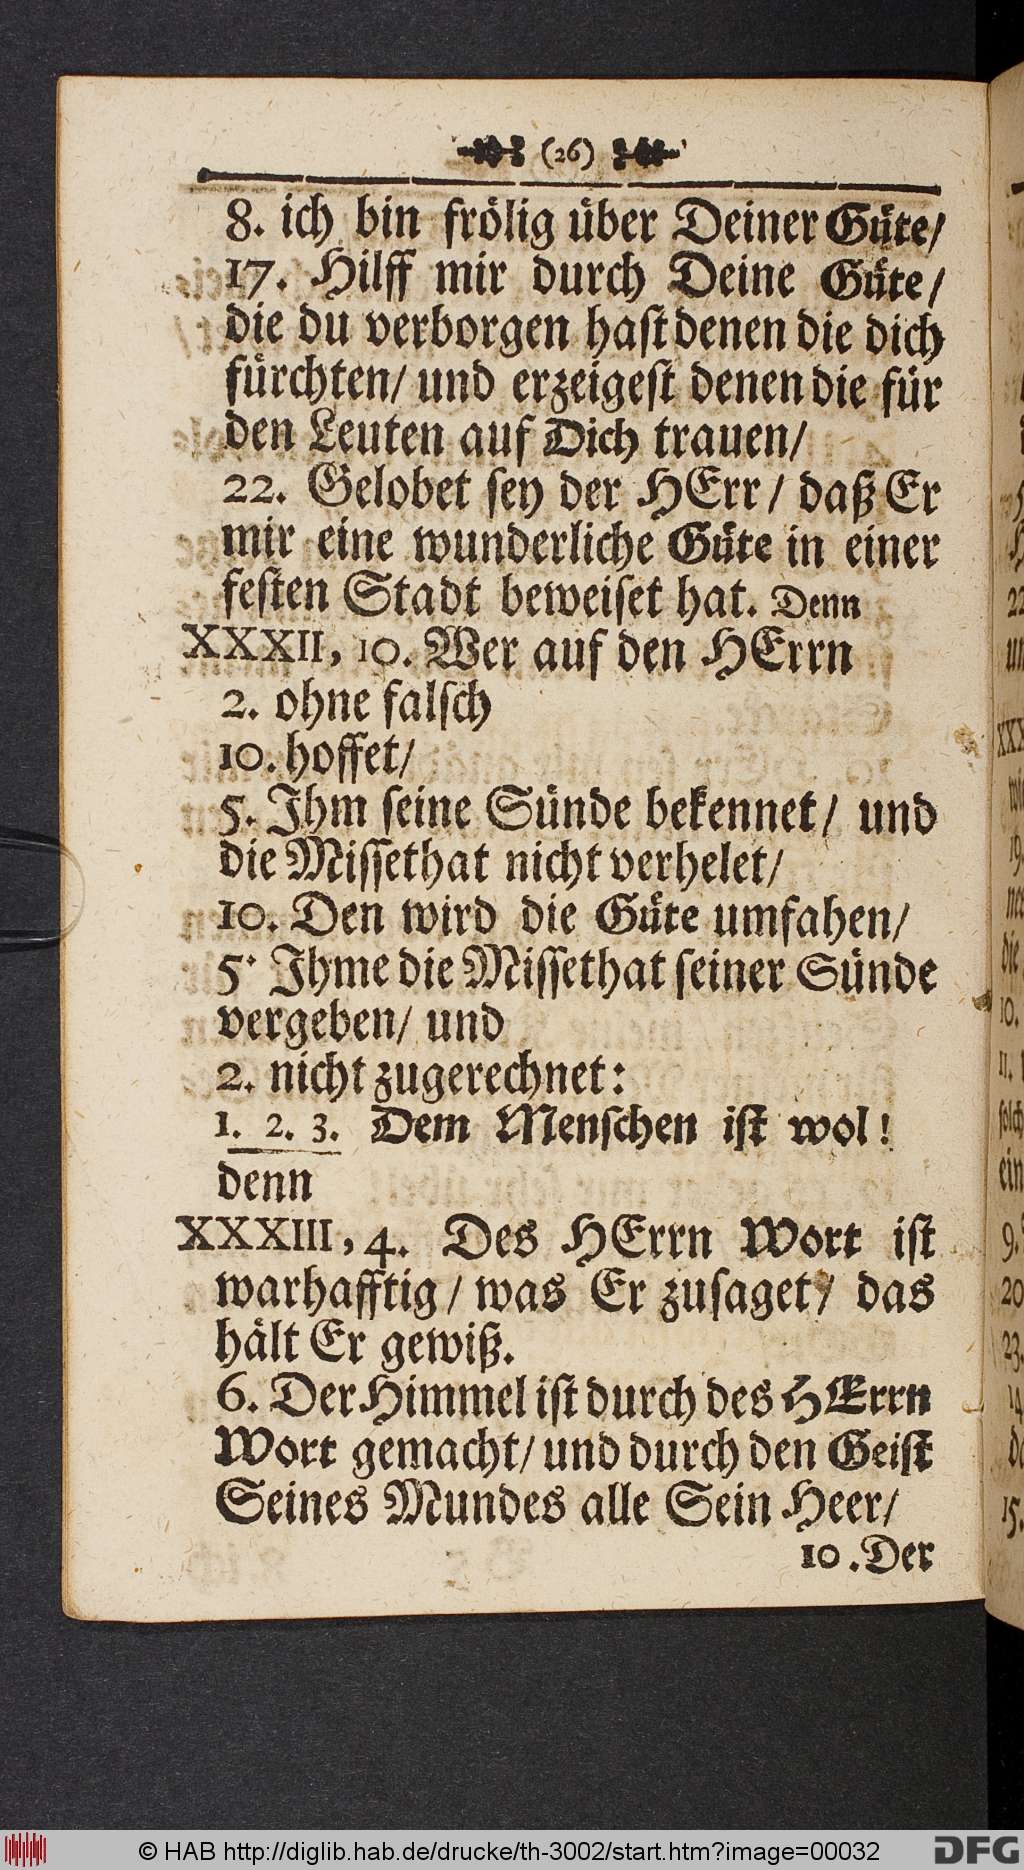 (26)
8. ich bin frölig über Deiner Güte/
17. Hilff mir durch Deine Güte/
die du verborgen hast denen die dich
fürchten/ und erzeigest denen die für
den Leuten auf Dich trauen/
22. Gelobet sey der HErr/ daß Er
mir eine wunderliche Güte in einer
festen Stadt beweiset hat. Denn
XXXII, 10. Wer auf den HErrn
2. ohne falsch
10. hoffet/
5. Ihm seine Sünde bekennet/ und
die Missethat nicht verhelet/
10. Den wird die Güte umfahen/
5. Ihme die Missethat seiner Sünde
vergeben/ und
2. nicht zugerechnet:
1. 2. 3. Dem Menschen ist wol!
denn
XXXIII, 4. Des HErrn Wort ist
warhafftig/ was Er zusaget/ das
hält Er gewiß.
6. Der Himmel ist durch des HErrn
Wort gemacht/ und durch den Geist
Seines Mundes alle Sein Heer/
10. Der
© HAB http://diglib.hab.de/drucke/th-3002/start.htm?image=00032
DFG